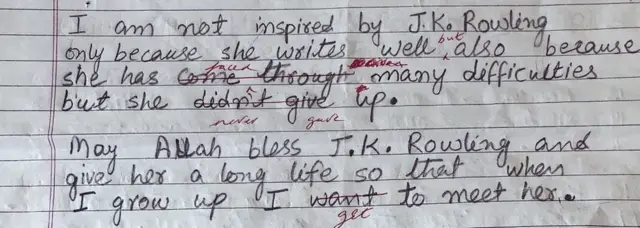 I am not inspired by J.K. Rowling
only because she writes well but also because
she has come faced through many difficulties
but she didn't give up.
never gave
May Allah bless J.K. Rowling and
give her a long life so that when
I grow up I want to meet her.
get